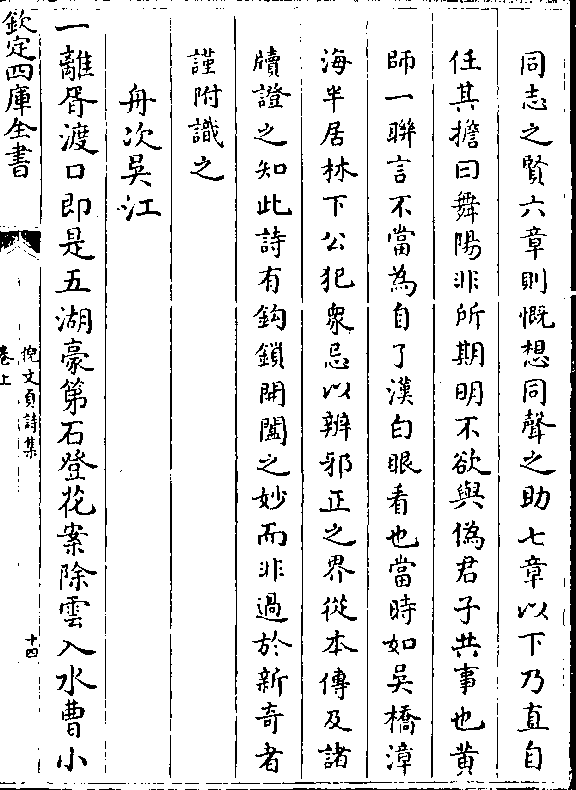 同志之賢六章則慨想同聲之助七章以下乃直自
任其擔曰舞陽非所期明不欲與偽君子共事也黄
師一聨言不當為自了漢白眼看也當時如吳橋漳
海半居林下公犯衆忌以辨邪正之界從本傳及諸
牘證之知此詩有鈎鎖開闔之妙而非過於新奇者
謹附識之
舟次吳江
一離胥渡口即是五湖豪第石登花案除雲入水曹小
欽定四庫全書
倪文貞詩集
卷上
十四